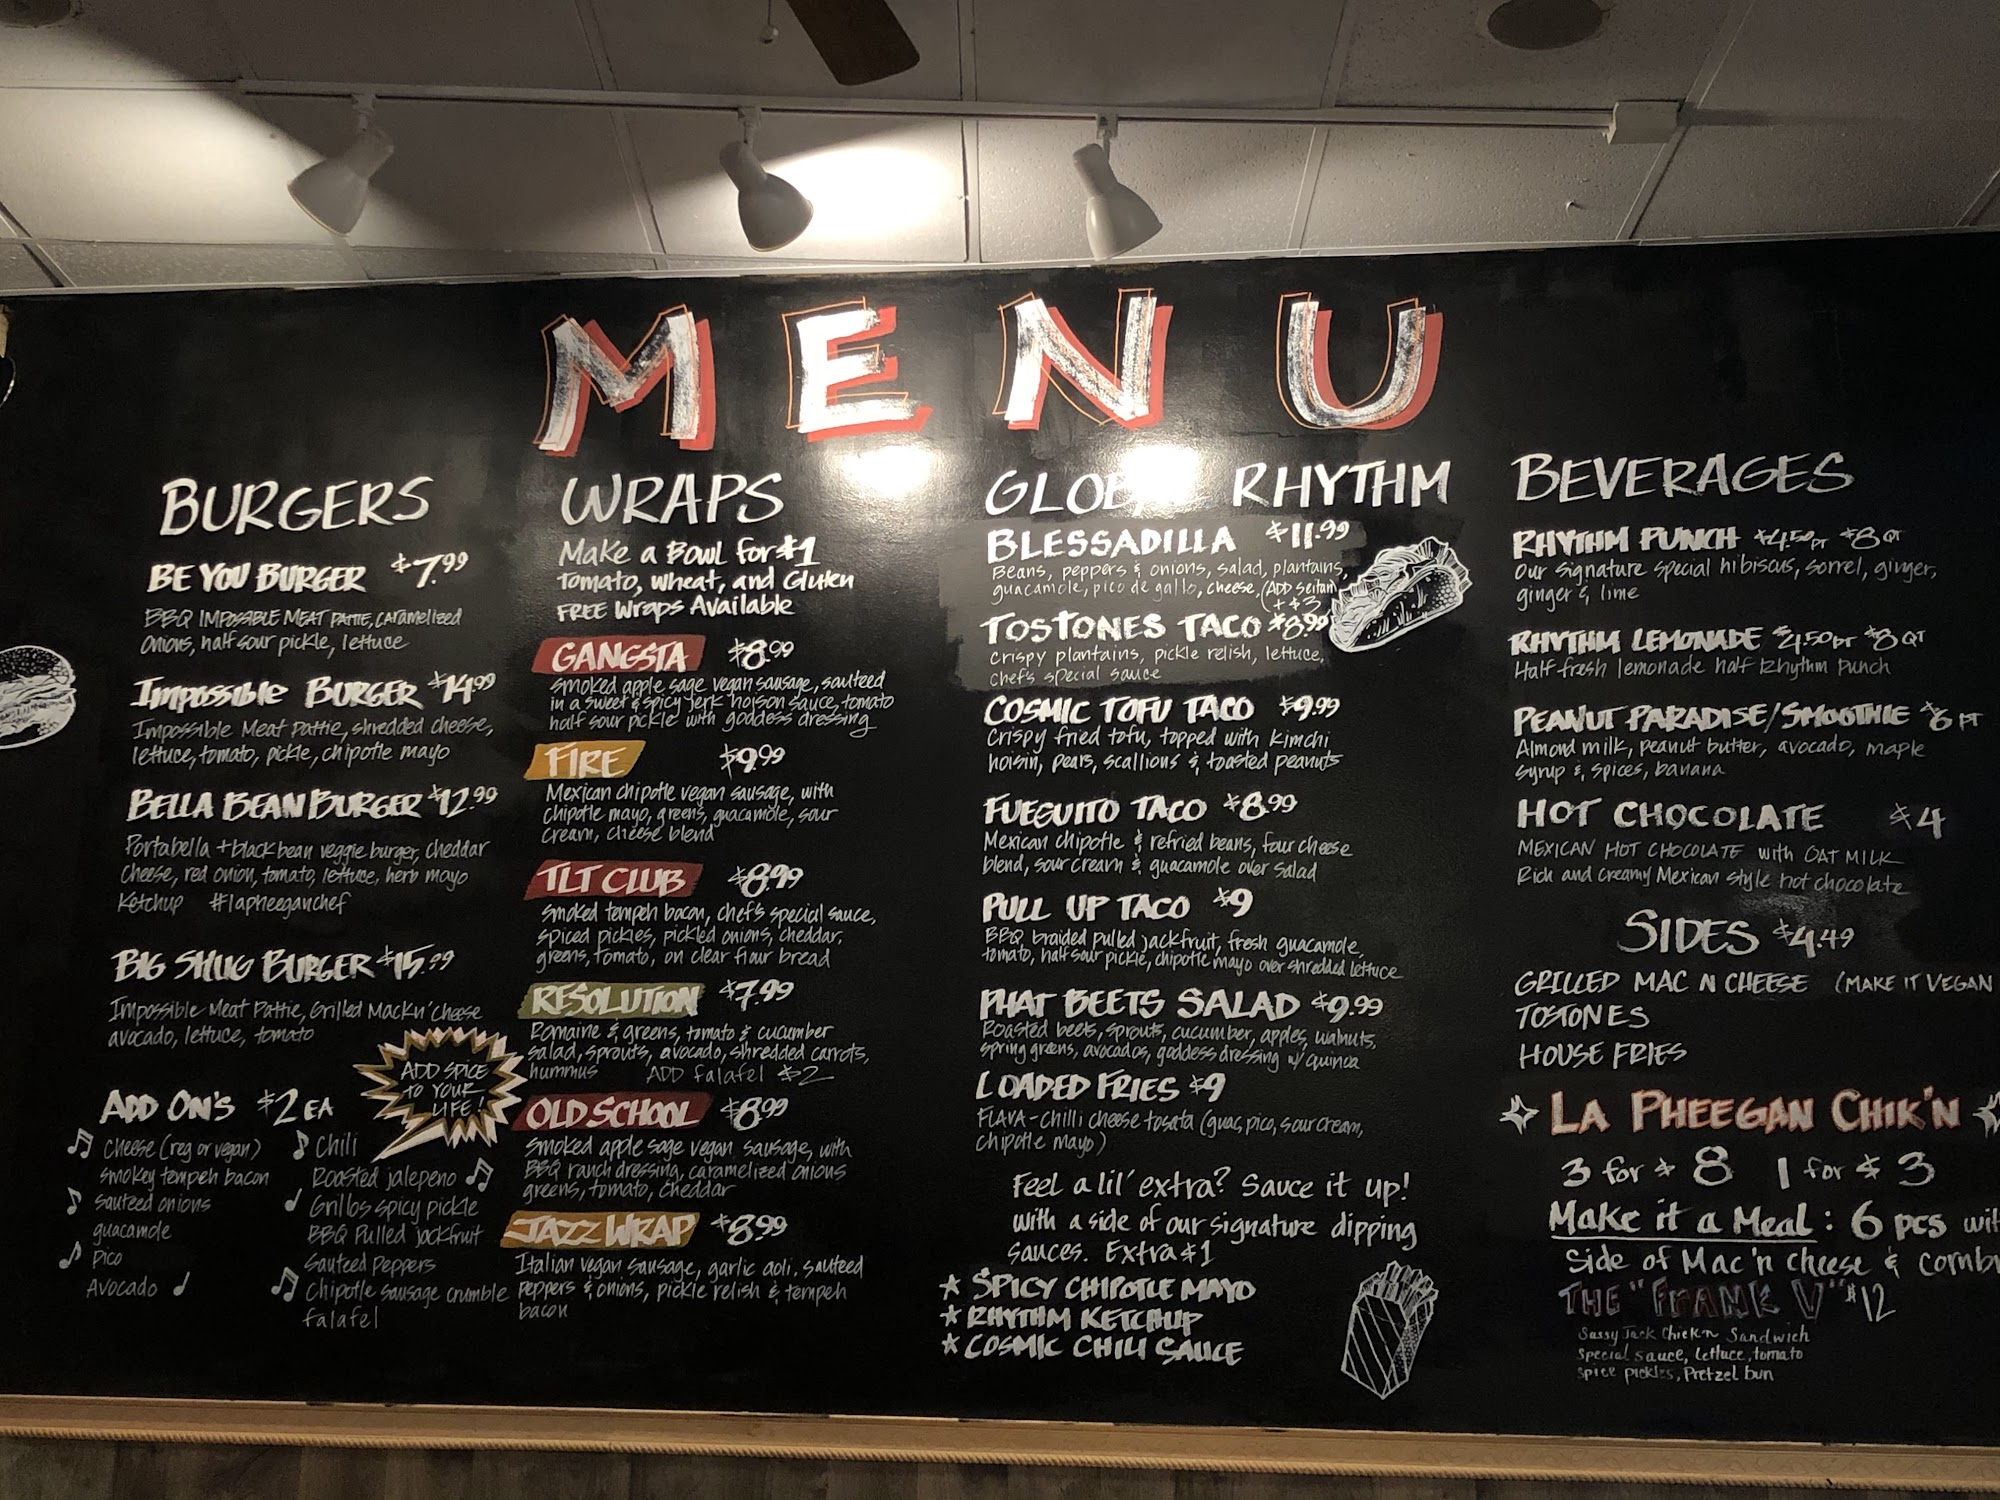 MENU
BURGERS
BE YOU BURGER $7.99
BBQ IMPOSSIBLE MEAT PATTIE, caramelized
Onions, half sour pickle, lettuce
Impossible BURGER $14.99
Impossible Meat Pattie, shredded cheese,
lettuce, tomato, pickle, chipotle mayo
BELLA BEAN BURGER $12.99
Portabella + black bean veggie burger, cheddar
Cheese, red onion, tomato, lettuce, herb mayo
Ketchup #lapheeganchef
BIG SHUG BURGER $15.99
Impossible Meat Pattie, Grilled Mackn'cheese
avocado, lettuce, tomato
ADD SPICE
TO YOUR
LIFE!
ADD ON'S $2 EA
Cheese (reg or vegan)
smokey tempeh bacon
sauteed onions
guacamole
Pico
Avocado
Chili
Roasted jalepeno
Grillos spicy pickle
BBQ Pulled jackfruit
Sauteed Peppers
Chipotle sausage crumble
falafel
WRAPS
Make a Bowl for $1
Tomato, wheat, and Gluten
FREE Wraps Available
GANGSTA $8.99
smoked apple sage vegan sausage, sauteed
in a sweet & spicy jerk hoison sauce, tomato
half sour pickle with goddess dressing
FIRE $9.99
Mexican chipotle vegan sausage, with
chipotle mayo, greens, guacamole, sour
cream, cheese blend
TLT CLUB $8.99
smoked tempeh bacon, chef's special sauce,
spiced pickles, pickled onions, cheddar,
greens, tomato, on clear flour bread
RESOLUTION $7.99
Romaine & greens, tomato & cucumber
salad, sprouts, avocado, shredded carrots,
hummus ADD falafel $2
OLD SCHOOL $8.99
smoked apple sage vegan sausage, with
BBQ ranch dressing, caramelized onions
greens, tomato, cheddar
JAZZ WRAP $8.99
Italian vegan sausage, garlic aoli, sauteed
peppers & onions, pickle relish & tempeh
bacon
RHYTHM
BLESSADILLA $11.99
Beans, peppers & onions, salad, plantains,
guacamole, pico de gallo, cheese, (ADD seitan
+ $3)
TOSTONES TACO $8.99
crispy plantains, pickle relish, lettuce,
chef's special sauce
COSMIC TOFU TACO $9.99
Crispy fried tofu, topped with kimchi
hoisin, pears, scallions & toasted peanuts
FUEGUITO TACO $8.99
Mexican chipotle & refried beans, four cheese
blend, sour cream & guacamole over salad
PULL UP TACO $9
BBQ braided pulled jackfruit, fresh guacamole,
tomato, half sour pickle, chipotle mayo over shredded lettuce
PHAT BEETS SALAD $9.99
Roasted beets, sprouts, cucumber, apples, walnuts,
spring greens, avocados, goddess dressing w/ quinoa
LOADED FRIES $9
FLAVA-Chilli cheese tosata (guac, pico, sour cream,
chipotle mayo)
Feel a lil' extra? Sauce it up!
with a side of our signature dipping
sauces. Extra $1
SPICY CHIPOTLE MAYO
RHYTHM KETCHUP
COSMIC CHILI SAUCE
BEVERAGES
RHYTHM PUNCH $4.50 PT $8 QT
Our signature special hibiscus, sorrel, ginger,
ginger & lime
RHYTHM LEMONADE $4.50 PT $8 QT
Half fresh lemonade half Rhythm Punch
PEANUT PARADISE/SMOOTHIE $6 PT
Almond milk, peanut butter, avocado, maple
syrup & spices, banana
HOT CHOCOLATE $4
MEXICAN HOT CHOCOLATE with OAT MILK
Rich and creamy Mexican style hot chocolate
SIDES $4.49
GRILLED MAC N CHEESE (MAKE IT VEGAN
TOSTONES
HOUSE FRIES
LA PHEEGAN CHIK'N
3 for $8 1 for $3
Make it a Meal: 6 pcs
Side of Mac'n cheese &
THE "FRANK V" $12
Sassy Jack Chick'n Sandwich
Special sauce, lettuce, tomato
spice pickles, Pretzel bun